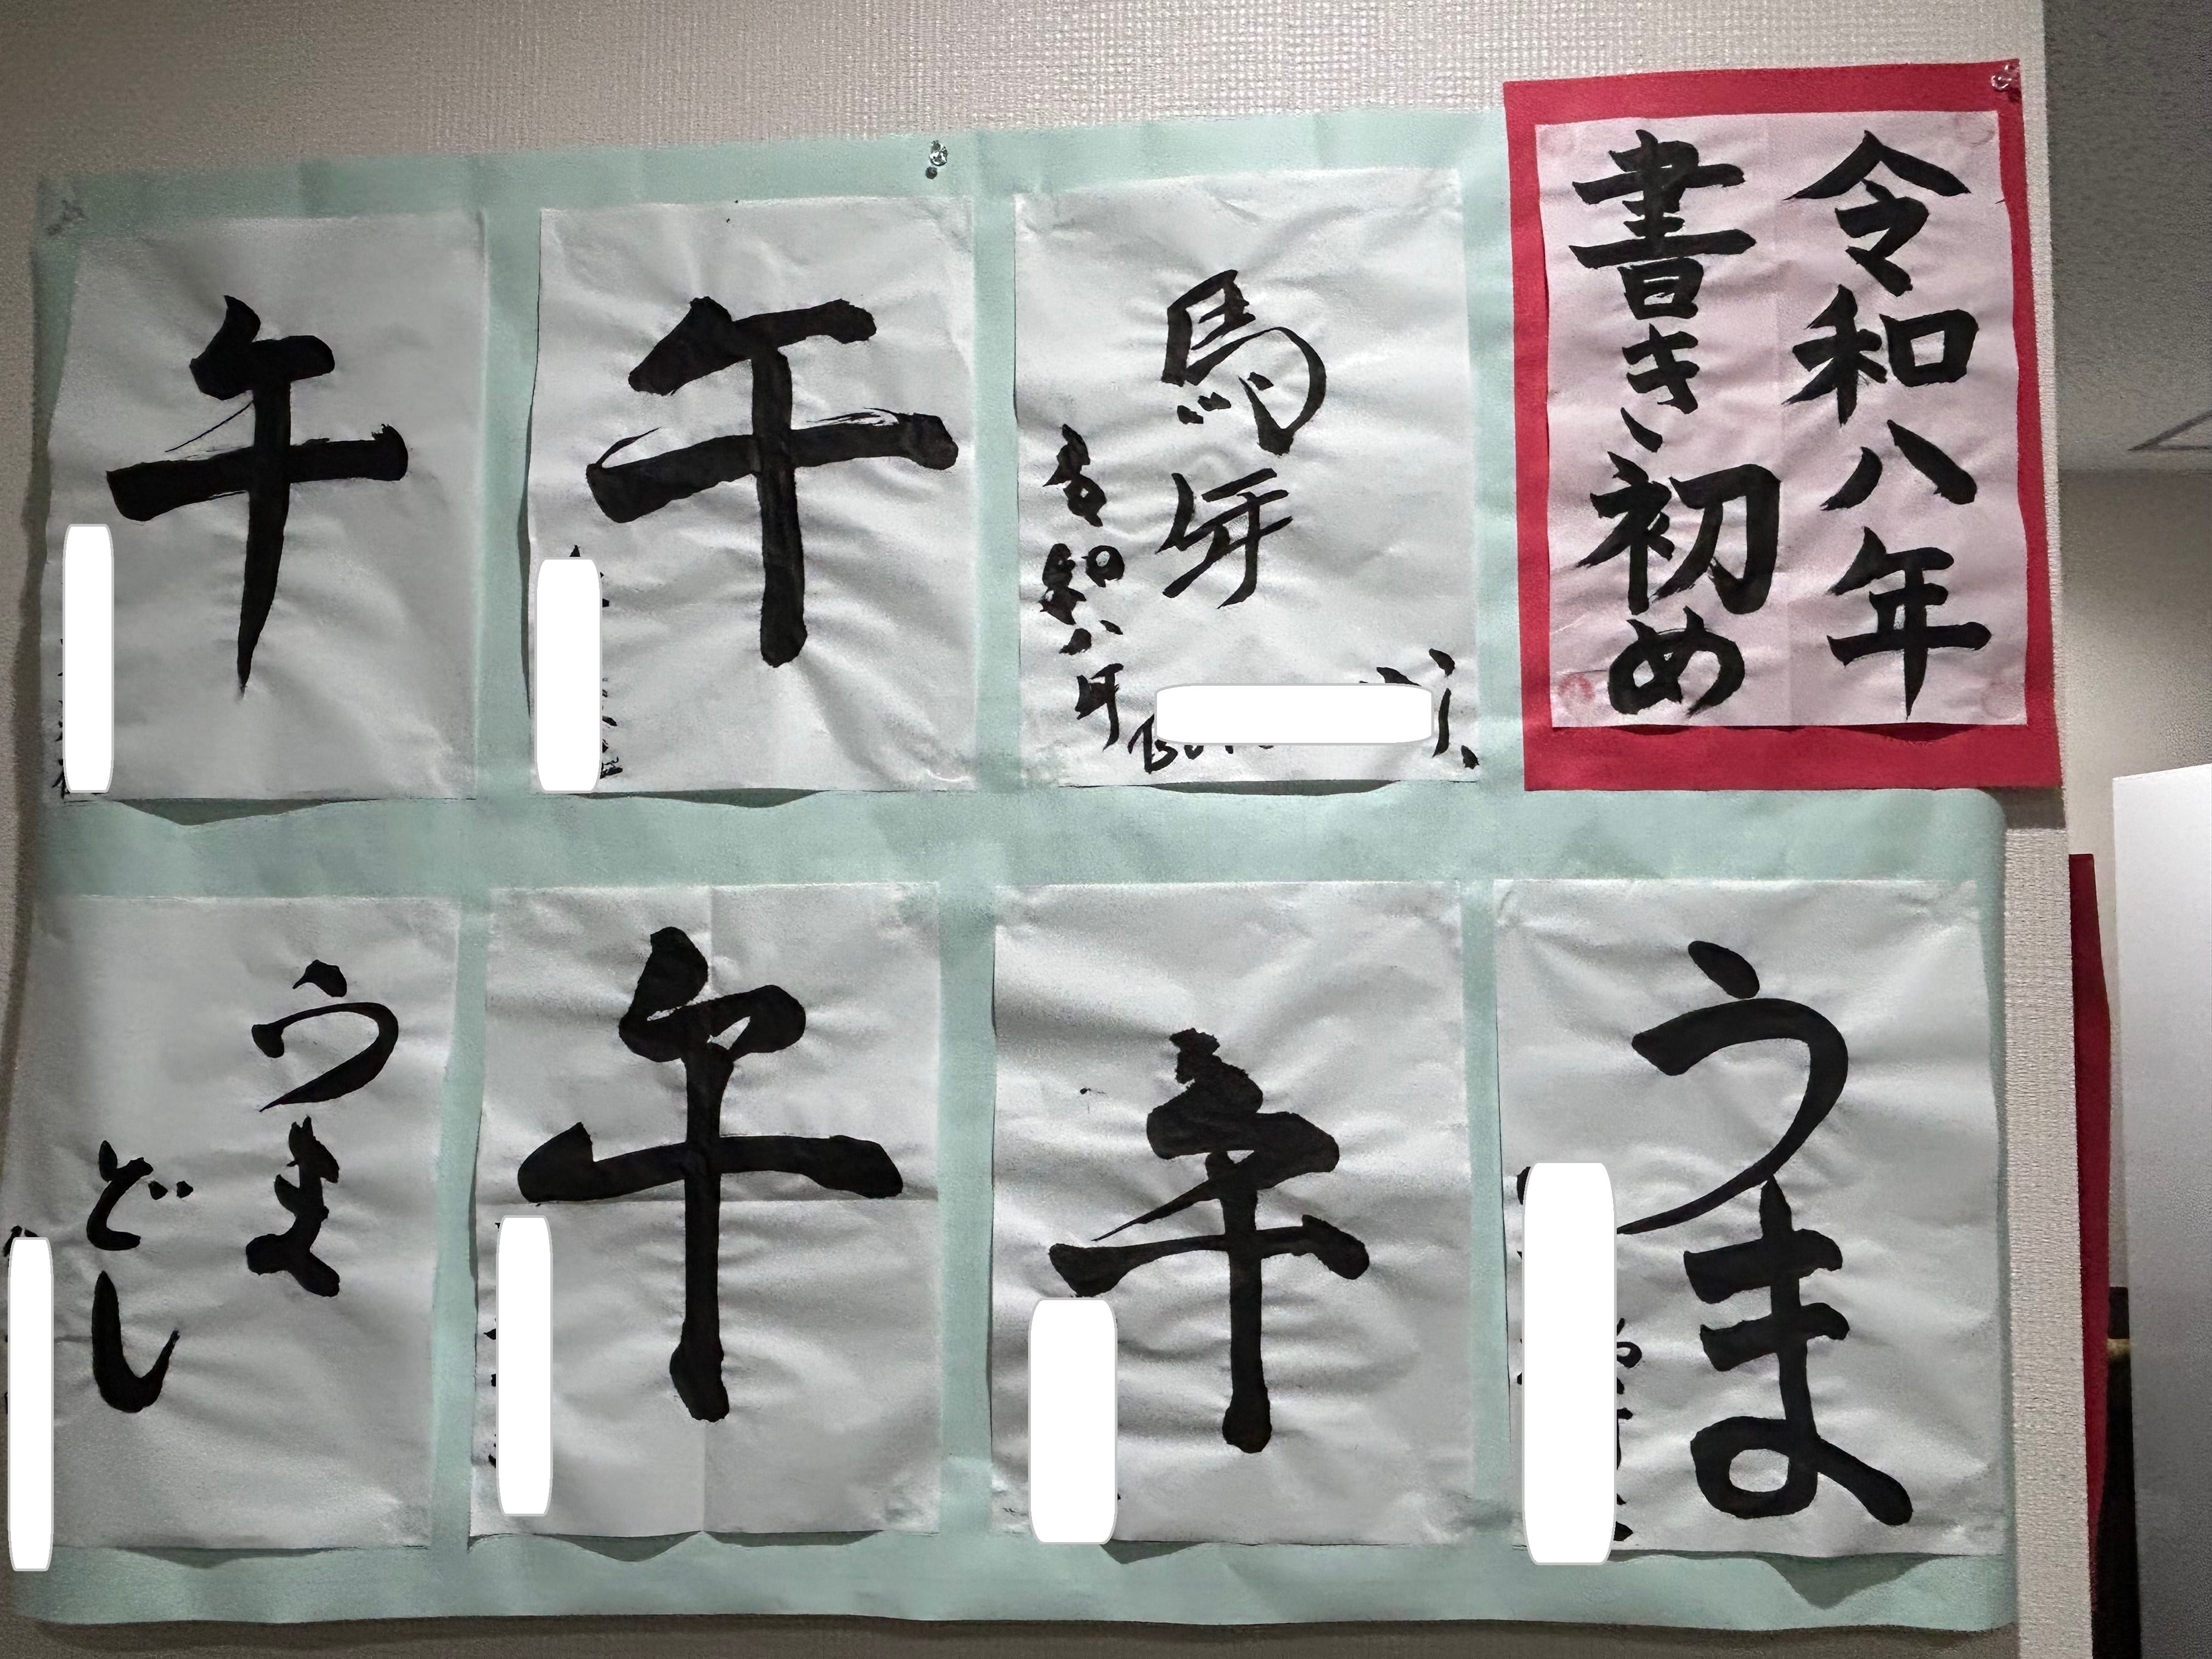 令和八年
書き初め
馬年
令和八年
午
午
うま
午
午
うま
どし